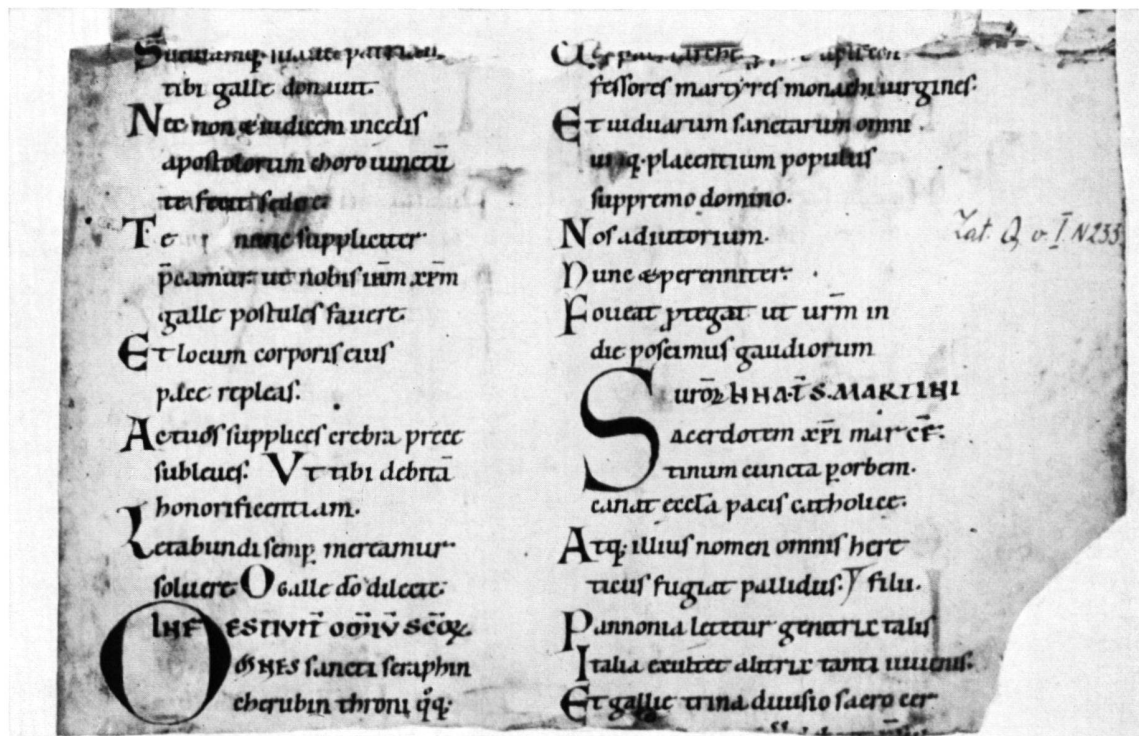 tibi galle donauit.
Nec non & iudicem incelis
apostolorum choro iunctū
te fecit sedere
Te nunc suppliciter
p̄camur ut nobis ih̄m xp̄m
galle postules fauere.
Et locum corporis eius
p̲ice repleas.
Actuos supplices crebra prece
subleues. Vt tibi debitā
honorificentiam.
Letabundi semp̲ mereamur
soluere O Galle dō dilecte.
IN FESTIVIT̄ OM̄IV̄ SCŌꝜ.
OM̄NES sancti seraphin
cherubin throni q̊q;
fessores martyres monachi uirgines.
Et uiduarum sanctarum omni
umq; placentium populus
supremo domino.
Nos adiutorium.
Nunc & perenniter.
Foueat p̲tegat ut ur̄m in
die poscimus gaudiorum
uroꝝ IN NAT̄ S. MARTINI
Sacerdotem xp̄i mar CF̄.
tinum cuncta p̲ orbem.
canat eccl̄a pacis catholice.
Atq; illius nomen omnis here
ticus fugiat pallidus. filii.
Pannonia letetur genitrix talis
Italia exultet alitrix tanti iuuenis.
Et gallie trina diuisio sacro cer
Lat. Q v. I N 233